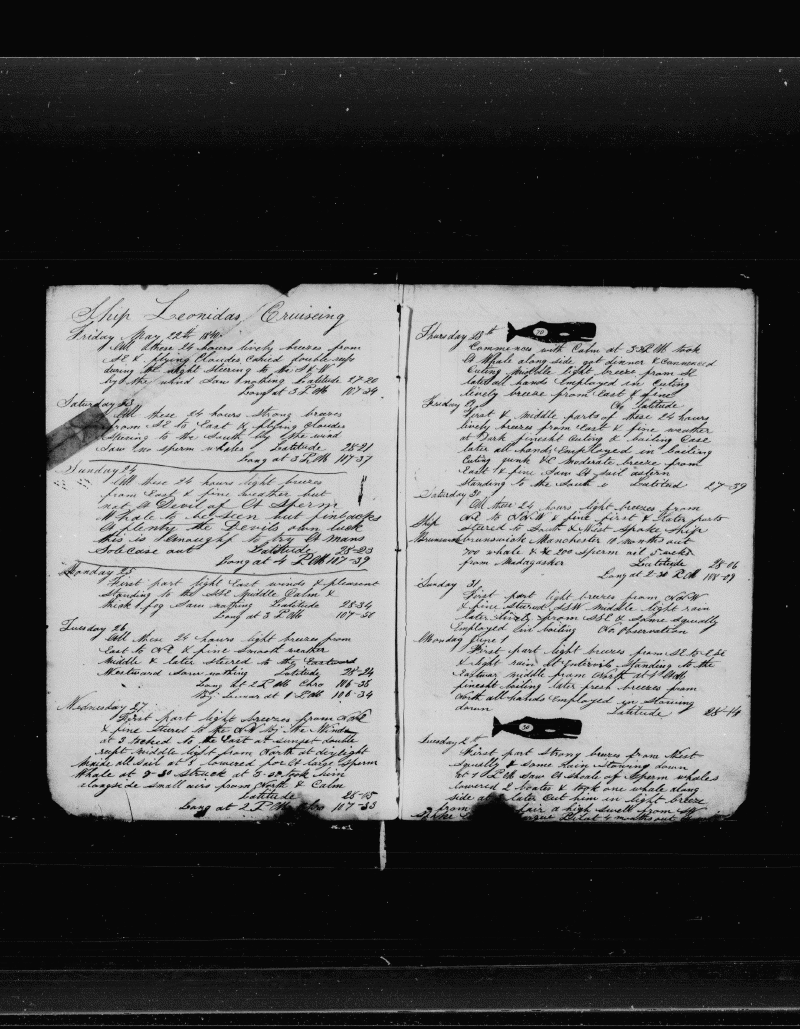 Ship Leonidas Cruiseing
Friday May 22th 1840
All these 24 hours lively breezes from
SE & flying Cloudes Caried double reefs
during the night Steering to the S & W
by the wind Saw nothing Latitude 27-20
Long at 3 P.M 107-24
Saturday 23
All these 24 hours Strong breezes
from SE to East & flying Clouds
Steering to the South by the wind
Saw no sperm whales Latitude 28-21
Long at 3 P.M 107-37
Sunday 24
All these 24 hours light breezes
from East & fine weather but
not A Devil of A Sperm
Whale to be seen but finbacks
A plenty the Devils own luck
this is Enought to try A mans
Sole case out Latitude 28-23
Long at 4 P.M 107-39
Monday 25
First part light East winds & pleasent
Standing to the Middle Calm &
thick fog Saw nothing Latitude 28-34
Long at 3 P.M 107-
Tuesday 26
All these 24 hours light breezes from
East to NE & fine Smooth weather
Middle & later steered to the Eastward
Westward Saw nothing Latitude 28-24
Long at 2 P.M Chro 106-35
By Lunar at 1 P.M 106-34
Wednesday 27
First part light breezes from
& fine Stered to the by the Wind
at 5 tacked to the East at sunset double
reefs middle light from North at daylight
made all sail at 8 lowered for A large Sperm
Whale at struck at took him
alongside small airs from North & Calm
Latitude 28-15
Long at 2 P.M 107-33
Thursday 28th
70
Commences with Calm at 3 P.M took
A Whale along side got dinner & Commenced
Cuting Middle light breeze from
later all hands Employed in Cuting
lively breeze from East & fine
No Latitude
Friday 29
First & Middle parts of these 24 hours
lively breezes from East & fine weather
at Dark finesht Cuting & boiling Case
later all hands Employed in boiling
Cuting junk &C Moderate breeze from
East & fine Saw A Sail astern
Standing to the Latitud 27-59
Saturday 30
All these 24 hours light breezes from
& fine first & later parts
Ship steered to South & West Spoke Ship
Brunswick brunswick Manchester months out
700 whale & 200 sperm oil
from Madagasker Latitude 28-06
Long at 2-30 P.M 108-09
Sunday 31
First part light breezes from
& fine Stered SSW Middle light rain
later lively from SSE & some squally
Employed in boiling No Observation
Monday June 1
First part light breezes from SE to ESE
& light rain at Intervils Standing to the
Eastwar middle from North at
finesht boiling later fresh breezes from
North all hands Employed in Stowing
down Latitude
50
Tuesday 2th
First part Strong breezes from West
Squally & some Rain Stowing down
at 1 P.M Saw A Shoale of Sperm whales
lowered 2 boates & took one whale along
side at later Cut him in light breeze
from fair a high swell from
Spoke